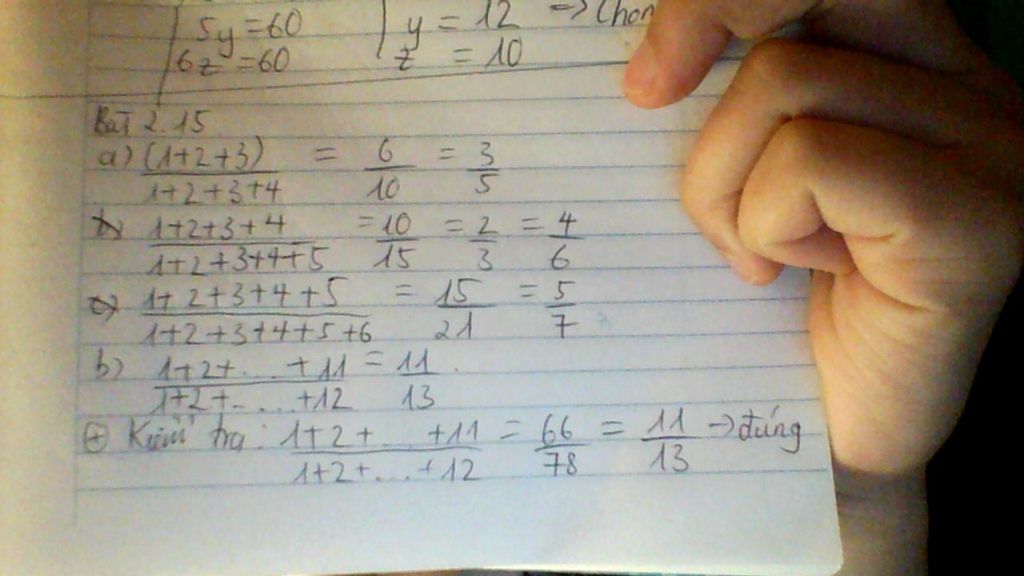 5y = 60 y = 12 → Chọn
6z = 60 z = 10
Bài 2.15
a) (1+2+3)/(1+2+3+4) = 6/10 = 3/5
b) (1+2+3+4)/(1+2+3+4+5) = 10/15 = 2/3 = 4/6
c) (1+2+3+4+5)/(1+2+3+4+5+6) = 15/21 = 5/7
b) (1+2+...+11)/(1+2+...+12) = 11/13.
⊕ Kiểm tra: (1+2+...+11)/(1+2+...+12) = 66/78 = 11/13 → đúng